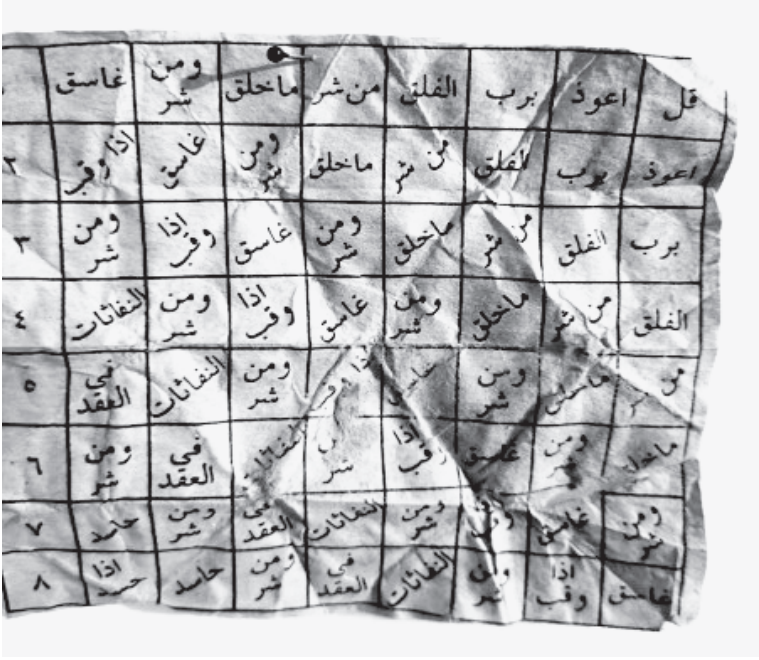 قل اعوذ برب الفلق من شر ماخلق ومن شر غاسق
اعوذ برب الفلق من شر ماخلق ومن شر غاسق اذا وقب ٢
برب الفلق من شر ماخلق ومن شر غاسق اذا وقب ومن شر ٣
الفلق من شر ماخلق ومن شر غاسق اذا وقب ومن شر النفاثات ٤
من شر ومن شر اذا وقب ومن شر النفاثات في العقد ٥
ماخلق ومن شر غاسق اذا وقب شر النفاثات في العقد ومن شر ٦
ومن شر غاسق وقب ومن شر النفاثات في العقد ومن شر حاسد ٧
غاسق اذا وقب ومن شر النفاثات في العقد ومن شر حاسد اذا حسد ٨